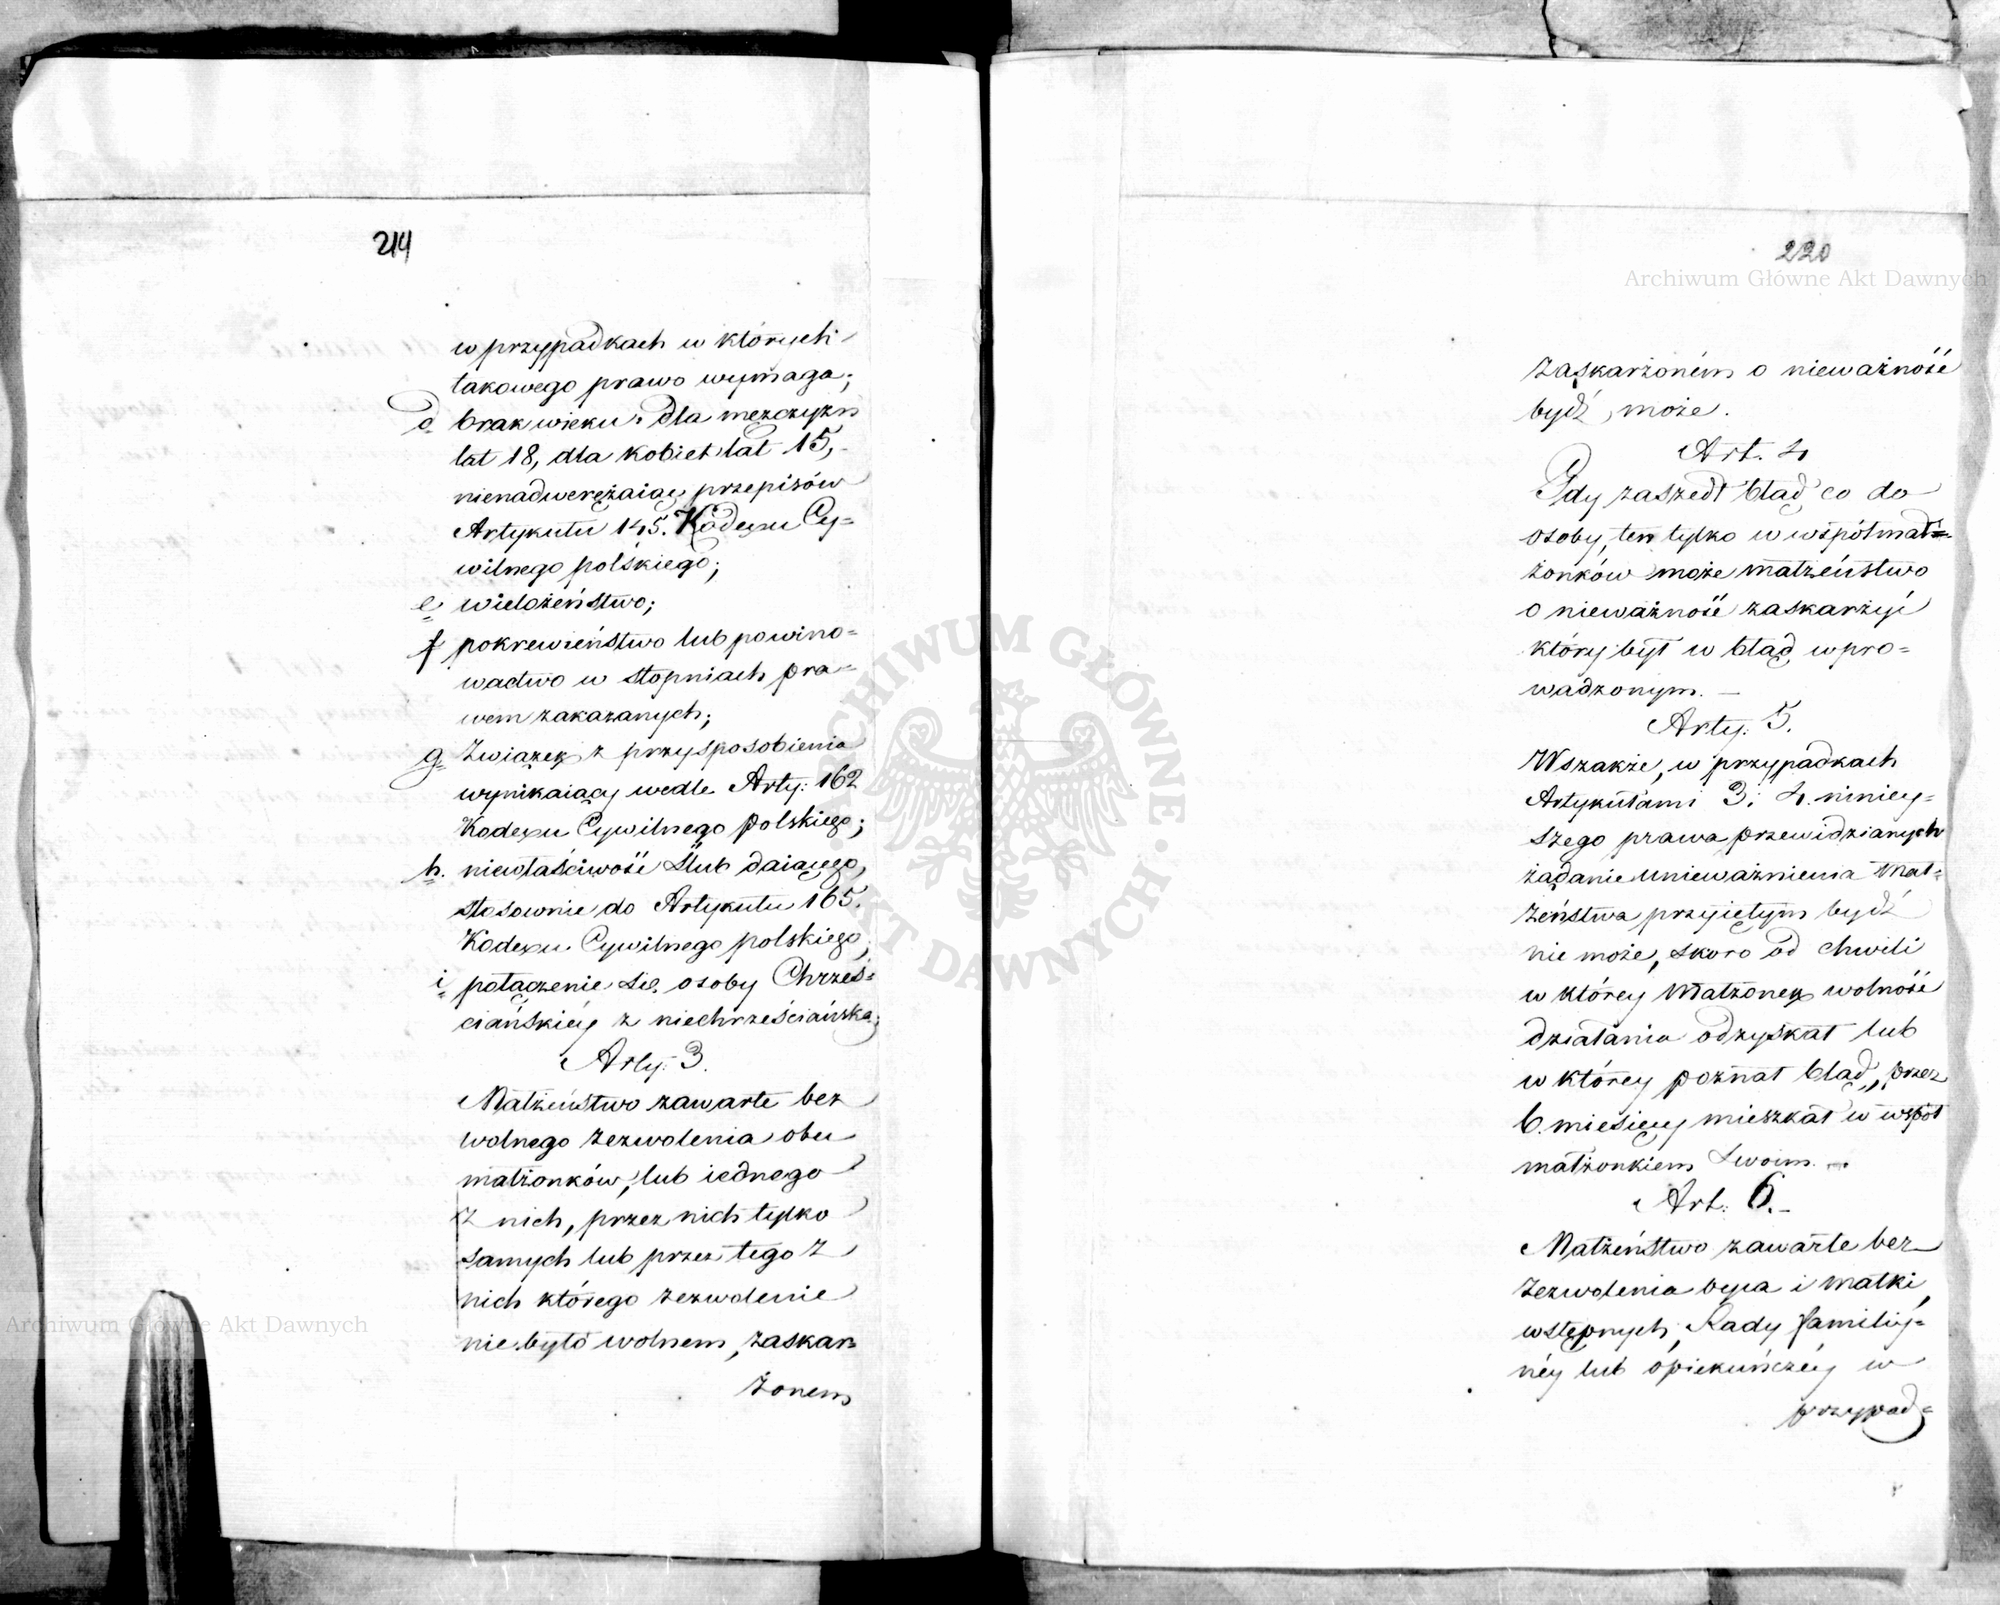 214
w przypadkach w których
takowego prawo wymaga;
d brak wieku. Dla męzczyzn
lat 18, dla kobiet lat 15,
nienadweręźaiąc przepisów
Artykułu 145. Kodexu Cy=
wilnego polskiego;
e wielożeństwo;
f pokrewieństwo lub powino=
wactwo w stopniach pra=
wem zakazanych;
g. Związek z przysposobienia
wynikaiący wedle Arty: 162
Kodexu Cywilnego polskiego;
h. niewłaściwość Ślub daiącego,
stosownie do Artykułu 165.
Kodexu Cywilnego polskiego;
i połączenie się osoby Chrześ=
ciańskiey z niechrześciańską;
Arty: 3.
Małżeństwo zawarte bez
wolnego zezwolenia obu
małżonków, lub iednego
z nich, przez nich tylko
samych lub przez tego z
nich którego zezwolenie
nie było wolnem, zaskar=
żonem
220
zaskarżoném o nieważność
bydź może.
Art. 4
Gdy zaszedł błąd co do
osoby, ten tylko w współmał=
żonków może małżeństwo
o nieważność zaskarżyć
który był w błąd wpro=
wadzonym. —
Arty: 5.
Wszakże, w przypadkach
Artykułami 3. i 4. niniey=
szego prawa przewidzianych
żądanie unieważnienia Mał=
żeństwa przyiętym bydź
nie może, skoro od chwili
w którey Małżonek wolność
działania odzyskał lub
w którey poznał błąd, przez
6. miesięcy mieszkał w współ
małżonkiem swoim. —
Art: 6. —
Małżeństwo zawarte bez
zezwolenia oyca i matki,
wstępnych, Rady familiy=
néy lub opiekuńczéy w
przypad=
Archiwum Główne Akt Dawnych
Archiwum Główne Akt Dawnych
ARCHIWUM GŁÓWNE · AKT DAWNYCH ·